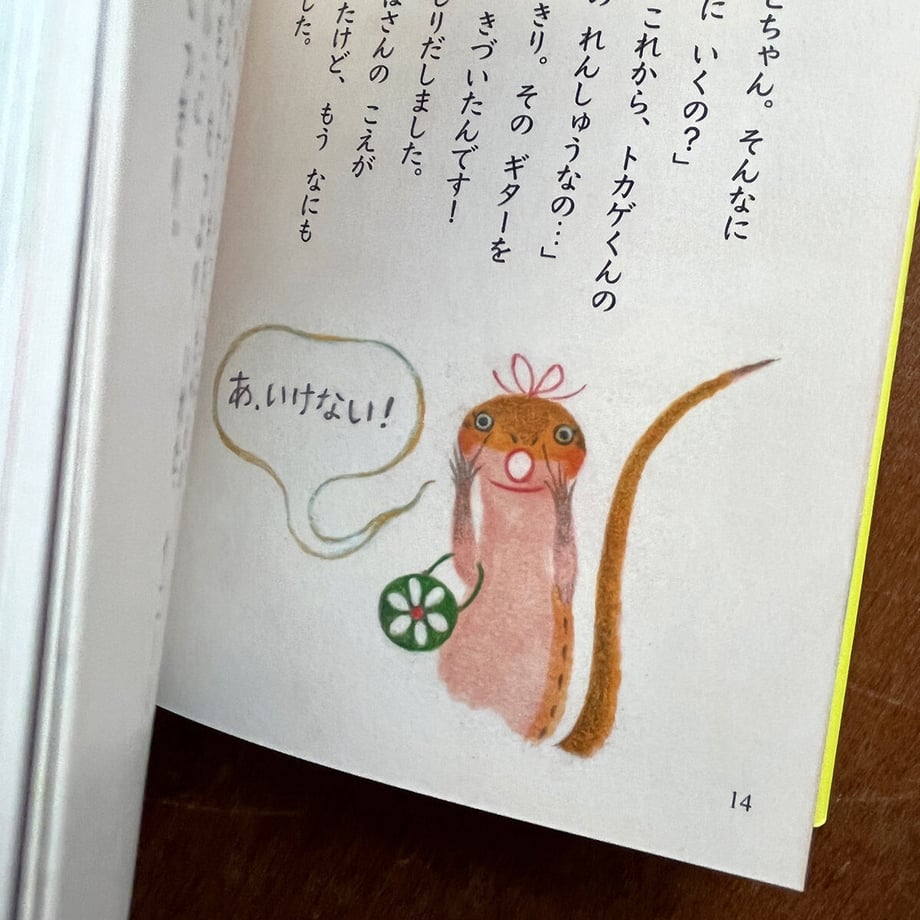 ちゃん。そんなに
に いくの？」
これから、トカゲくんの
の れんしゅうなの…」
きり。その ギターを
きづいたんです！
しりだしました。
さんの こえが
たけど、もう なにも
した。
あ、いけない！
14